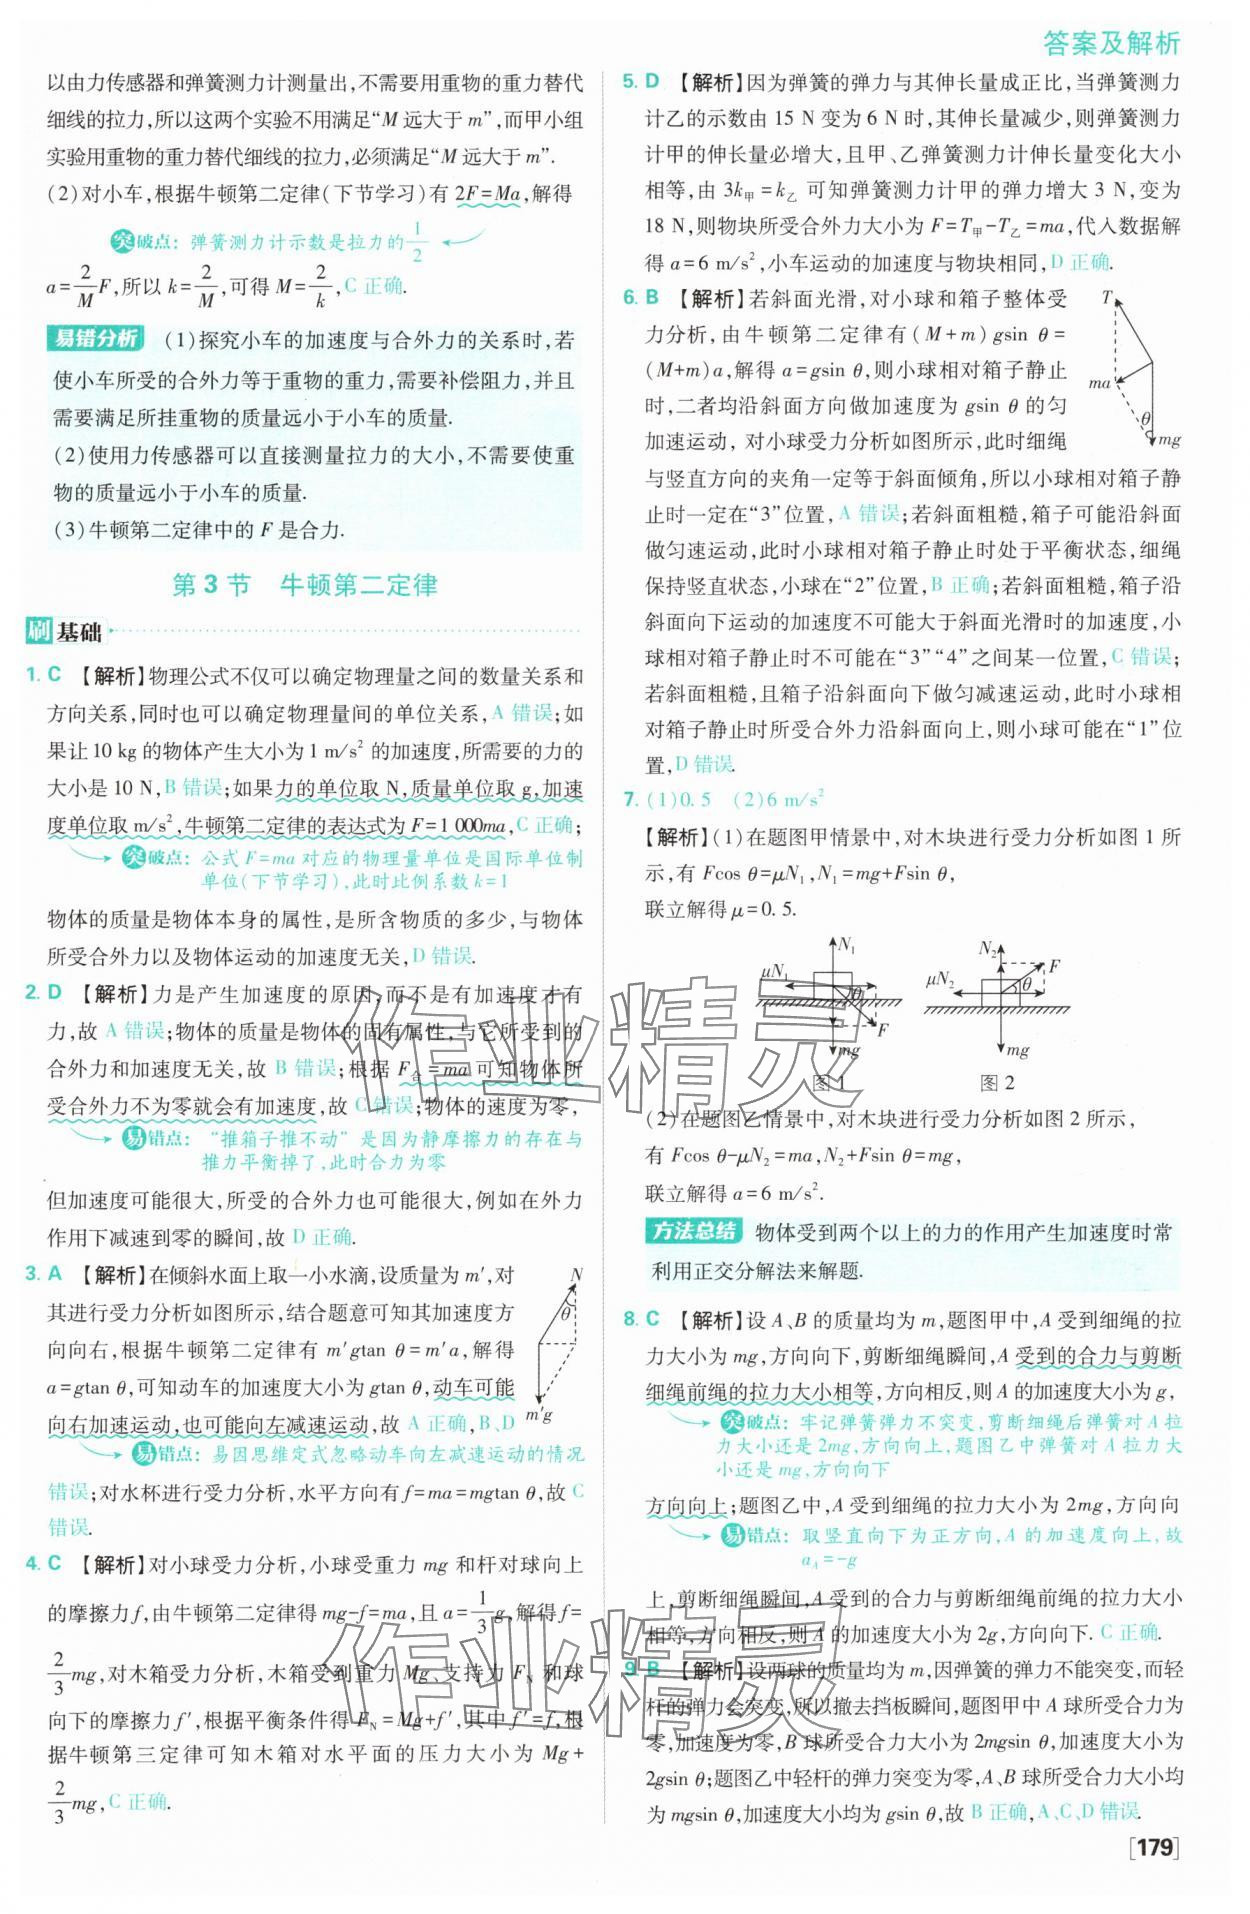 答案及解析
以由力传感器和弹簧测力计测量出,不需要用重物的重力替代
细线的拉力,所以这两个实验不用满足“M 远大于 m”,而甲小组
实验用重物的重力替代细线的拉力,必须满足“M 远大于 m”.
(2)对小车,根据牛顿第二定律(下节学习)有 2F=Ma,解得
突破点：弹簧测力计示数是拉力的1/2
a=2/M F,所以 k=2/M,可得 M=2/k,C 正确.
易错分析 (1)探究小车的加速度与合外力的关系时,若
使小车所受的合外力等于重物的重力,需要补偿阻力,并且
需要满足所挂重物的质量远小于小车的质量.
(2)使用力传感器可以直接测量拉力的大小,不需要使重
物的质量远小于小车的质量.
(3)牛顿第二定律中的 F 是合力.
第 3 节 牛顿第二定律
刷基础
1. C 【解析】物理公式不仅可以确定物理量之间的数量关系和
方向关系,同时也可以确定物理量间的单位关系,A 错误;如
果让10 kg 的物体产生大小为1 m/s² 的加速度,所需要的力的
大小是 10 N,B 错误;如果力的单位取 N,质量单位取 g,加速
度单位取 m/s²,牛顿第二定律的表达式为 F=1 000ma,C 正确;
突破点：公式 F=ma 对应的物理量单位是国际单位制
单位(下节学习),此时比例系数 k=1
物体的质量是物体本身的属性,是所含物质的多少,与物体
所受合外力以及物体运动的加速度无关,D 错误.
2. D 【解析】力是产生加速度的原因,而不是有加速度才有
力,故 A 错误;物体的质量是物体的固有属性,与它所受到的
合外力和加速度无关,故 B 错误;根据 F合=ma 可知物体所
受合外力不为零就会有加速度,故 C 错误;物体的速度为零,
易错点：“推箱子推不动”是因为静摩擦力的存在与
推力平衡掉了,此时合力为零
但加速度可能很大,所受的合外力也可能很大,例如在外力
作用下减速到零的瞬间,故 D 正确.
3. A 【解析】在倾斜水面上取一小水滴,设质量为 m′,对
其进行受力分析如图所示,结合题意可知其加速度方
向向右,根据牛顿第二定律有 m′gtan θ=m′a,解得
a=gtan θ,可知动车的加速度大小为 gtan θ,动车可能
向右加速运动,也可能向左减速运动,故 A 正确,B、D
N
θ
m′g
易错点：易因思维定式忽略动车向左减速运动的情况
错误;对水杯进行受力分析,水平方向有 f=ma=mgtan θ,故 C
错误.
4. C 【解析】对小球受力分析,小球受重力 mg 和杆对球向上
的摩擦力 f,由牛顿第二定律得 mg-f=ma,且 a=1/3 g,解得 f=
2/3 mg,对木箱受力分析,木箱受到重力 Mg、支持力 FN 和球
向下的摩擦力 f′,根据平衡条件得 FN=Mg+f′,其中 f′=f,根
据牛顿第三定律可知木箱对水平面的压力大小为 Mg+
2/3 mg,C 正确.
5. D 【解析】因为弹簧的弹力与其伸长量成正比,当弹簧测力
计乙的示数由 15 N 变为 6 N 时,其伸长量减少,则弹簧测力
计甲的伸长量必增大,且甲、乙弹簧测力计伸长量变化大小
相等,由 3k甲=k乙 可知弹簧测力计甲的弹力增大 3 N,变为
18 N,则物块所受合外力大小为 F=T甲-T乙=ma,代入数据解
得 a=6 m/s²,小车运动的加速度与物块相同,D 正确.
6. B 【解析】若斜面光滑,对小球和箱子整体受
力分析,由牛顿第二定律有(M+m)gsin θ=
(M+m)a,解得 a=gsin θ,则小球相对箱子静止
时,二者均沿斜面方向做加速度为 gsin θ 的匀
加速运动,对小球受力分析如图所示,此时细绳
T
ma
θ
mg
与竖直方向的夹角一定等于斜面倾角,所以小球相对箱子静
止时一定在“3”位置,A 错误;若斜面粗糙,箱子可能沿斜面
做匀速运动,此时小球相对箱子静止时处于平衡状态,细绳
保持竖直状态,小球在“2”位置,B 正确;若斜面粗糙,箱子沿
斜面向下运动的加速度不可能大于斜面光滑时的加速度,小
球相对箱子静止时不可能在“3”“4”之间某一位置,C 错误;
若斜面粗糙,且箱子沿斜面向下做匀减速运动,此时小球相
对箱子静止时所受合外力沿斜面向上,则小球可能在“1”位
置,D 错误.
7. (1)0.5 (2)6 m/s²
【解析】(1)在题图甲情景中,对木块进行受力分析如图 1 所
示,有 Fcos θ=μN₁,N₁=mg+Fsin θ,
联立解得 μ=0.5.
N₁
μN₁
θ
F
mg
图 1
N₂
μN₂
F
θ
mg
图 2
(2)在题图乙情景中,对木块进行受力分析如图 2 所示,
有 Fcos θ-μN₂=ma,N₂+Fsin θ=mg,
联立解得 a=6 m/s².
方法总结 物体受到两个以上的力的作用产生加速度时常
利用正交分解法来解题.
8. C 【解析】设 A、B 的质量均为 m,题图甲中,A 受到细绳的拉
力大小为 mg,方向向下,剪断细绳瞬间,A 受到的合力与剪断
细绳前绳的拉力大小相等,方向相反,则 A 的加速度大小为 g,
突破点：牢记弹簧弹力不突变,剪断细绳后弹簧对 A 拉
力大小还是 2mg,方向向上,题图乙中弹簧对 A 拉力大
小还是 mg,方向向下
方向向上;题图乙中,A 受到细绳的拉力大小为 2mg,方向向
易错点：取竖直向下为正方向,A 的加速度向上,故
aA=-g
上,剪断细绳瞬间,A 所受的合力与剪断细绳前绳的拉力大小
相等,方向相反,则 A 的加速度大小为 2g,方向向下.C 正确.
9. B 【解析】设两球的质量均为 m,因弹簧的弹力不能突变,而轻
杆的弹力会突变,所以撤去挡板瞬间,题图甲中 A 球所受合力为
零,加速度为零,B 球所受合力大小为 2mgsin θ,加速度大小为
2gsin θ;题图乙中轻杆的弹力突变为零,A、B 球所受合力大小均
为 mgsin θ,加速度大小均为 gsin θ,故 B 正确,A、C、D 错误.
[179]
作业精灵
作业精灵